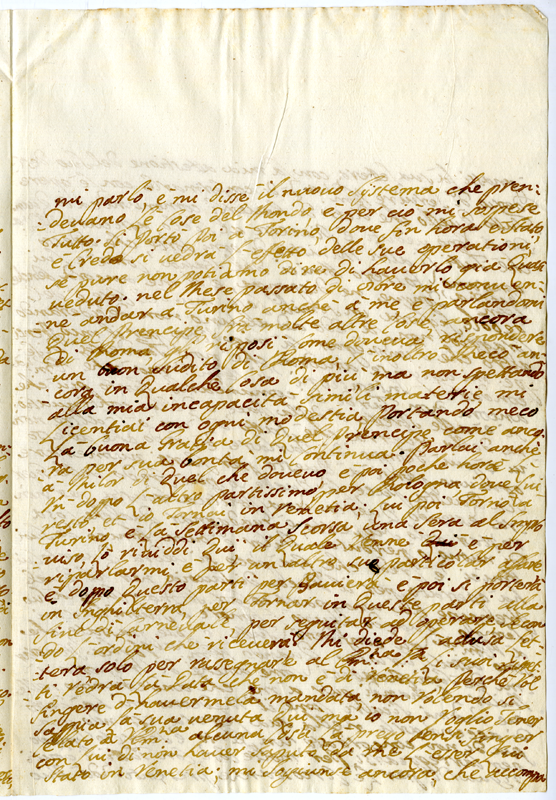 mi parlò, è mi disse il nuovo sistema che pren-
devano le cose del Mondo, è per ciò mi sospese
tutto. Si portò poi à Torino, dove fin hora è stato
è credo si vedrà l'effetto delle sue operationi,
se pure non potiamo dire di haverlo già quasi
veduto. nel mese passato di mi conven-
ne andar à Turino anche à me è parlandomi
quel Prencipe, frà molte altre cose, ancora
di Roma risposi come doveva rispondere
un buon suddito di Roma s'inoltrò meco an-
cora in qualche cosa di più ma non spettando
alla mia incapacità simili materie mi
licentiai con ogni modestia portando meco
la buona gratia di quel Prencipe come anco-
ra per sua bontà mi continua. Parlai anche
à di quel che dovevo è poi poche hore
un dopo l'altro partissimo per Bologna dove lui
restò et io tornai in Venetia, lui poi tornò à
Turino è la settimana scorsa, una sera al improv
viso, lo rividdi qui il quale venne è per
riparlarmi è per un altro suo particolar affare
è dopo questo partì per Baviera è poi si porterà
in Inghilterra per tornar in queste parti alla
fine di per seguitar ad operare secon
do l'ordini che riceverà. Mi diede l'aclusa let-
tera solo per rassegnare al i suoi
ti vedrà la data che non è di Venetia perche vol
fingere d'havermela mandata non volendo si
sappia la sua venuta qui ma io non voglio tener
celato à alcuna cosa la prego però finger
con lui di non haver saputo da me l'esser lui
stato in Venetia; mi soggiunse ancora, che accompa